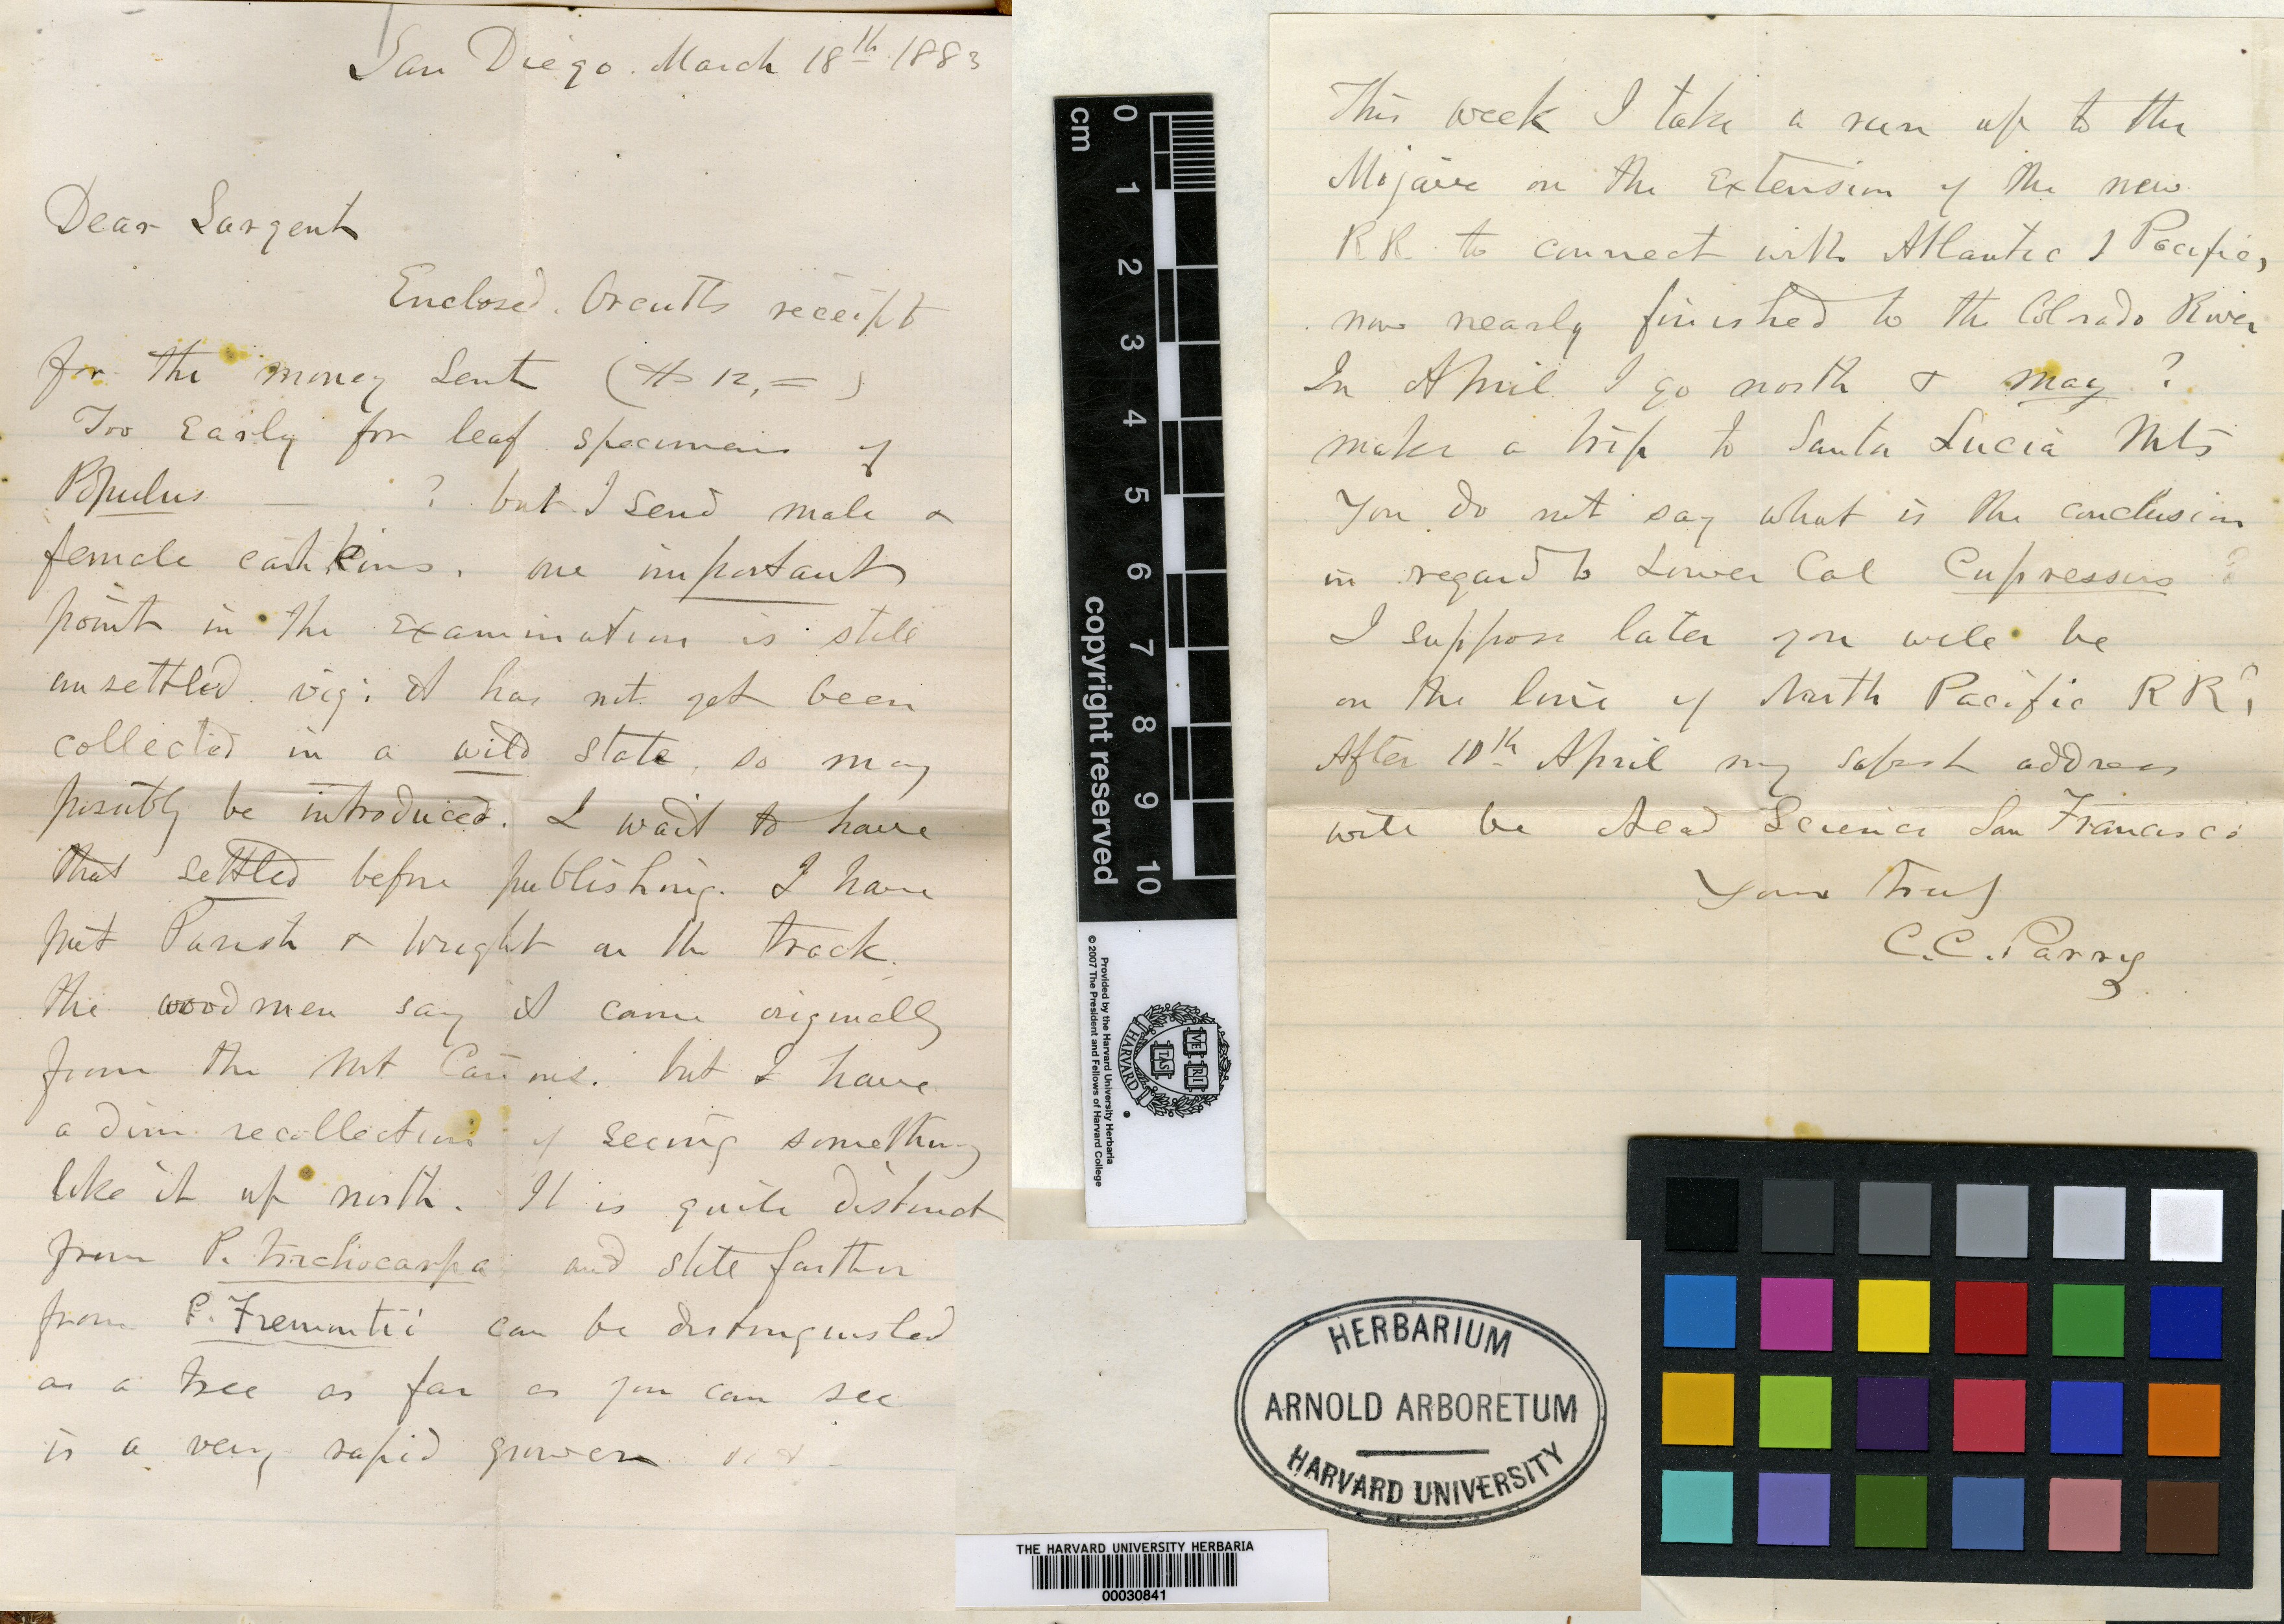 San Diego. March 18th 1883
Dear Sargent
Enclosed. Orcutts receipt
for the money sent ($12,=)
Too Early for leaf specimens of
Populus — ? but I send male &
female catkins. one important
point in the Examination is still
unsettled. viz: it has not yet been
collected in a wild state, so may
possibly be introduced. I wait to have
that settled before publishing. I have
put Parish & Wright on the track.
the woodmen say it came originally
from the Mt Cañons. but I have
a dim recollection of seeing something
like it up north. It is quite distinct
from P. trichocarpa and still farther
from P. Fremontii can be distinguished
as a tree as far as you can see
is a very rapid grower
This week I take a run up to the
Mojave on the Extension of the new
RR to connect with Atlantic & Pacific,
now nearly finished to the Colorado River
In April I go north & may ?
make a trip to Santa Lucia Mts
You do not say what is the conclusion
in regard to Lower Cal Cupressus ?
I suppose later you will be
on the line of North Pacific RR?
After 10th April my safest address
will be Acad Science San Francisco
Yours truly
C.C. Parry
cm
0
1
2
3
4
5
6
7
8
9
10
copyright reserved
Provided by the Harvard University Herbaria
© 2007 The President and Fellows of Harvard College
VE RI TAS
HARVARD
HERBARIUM
ARNOLD ARBORETUM
HARVARD UNIVERSITY
THE HARVARD UNIVERSITY HERBARIA
00030841